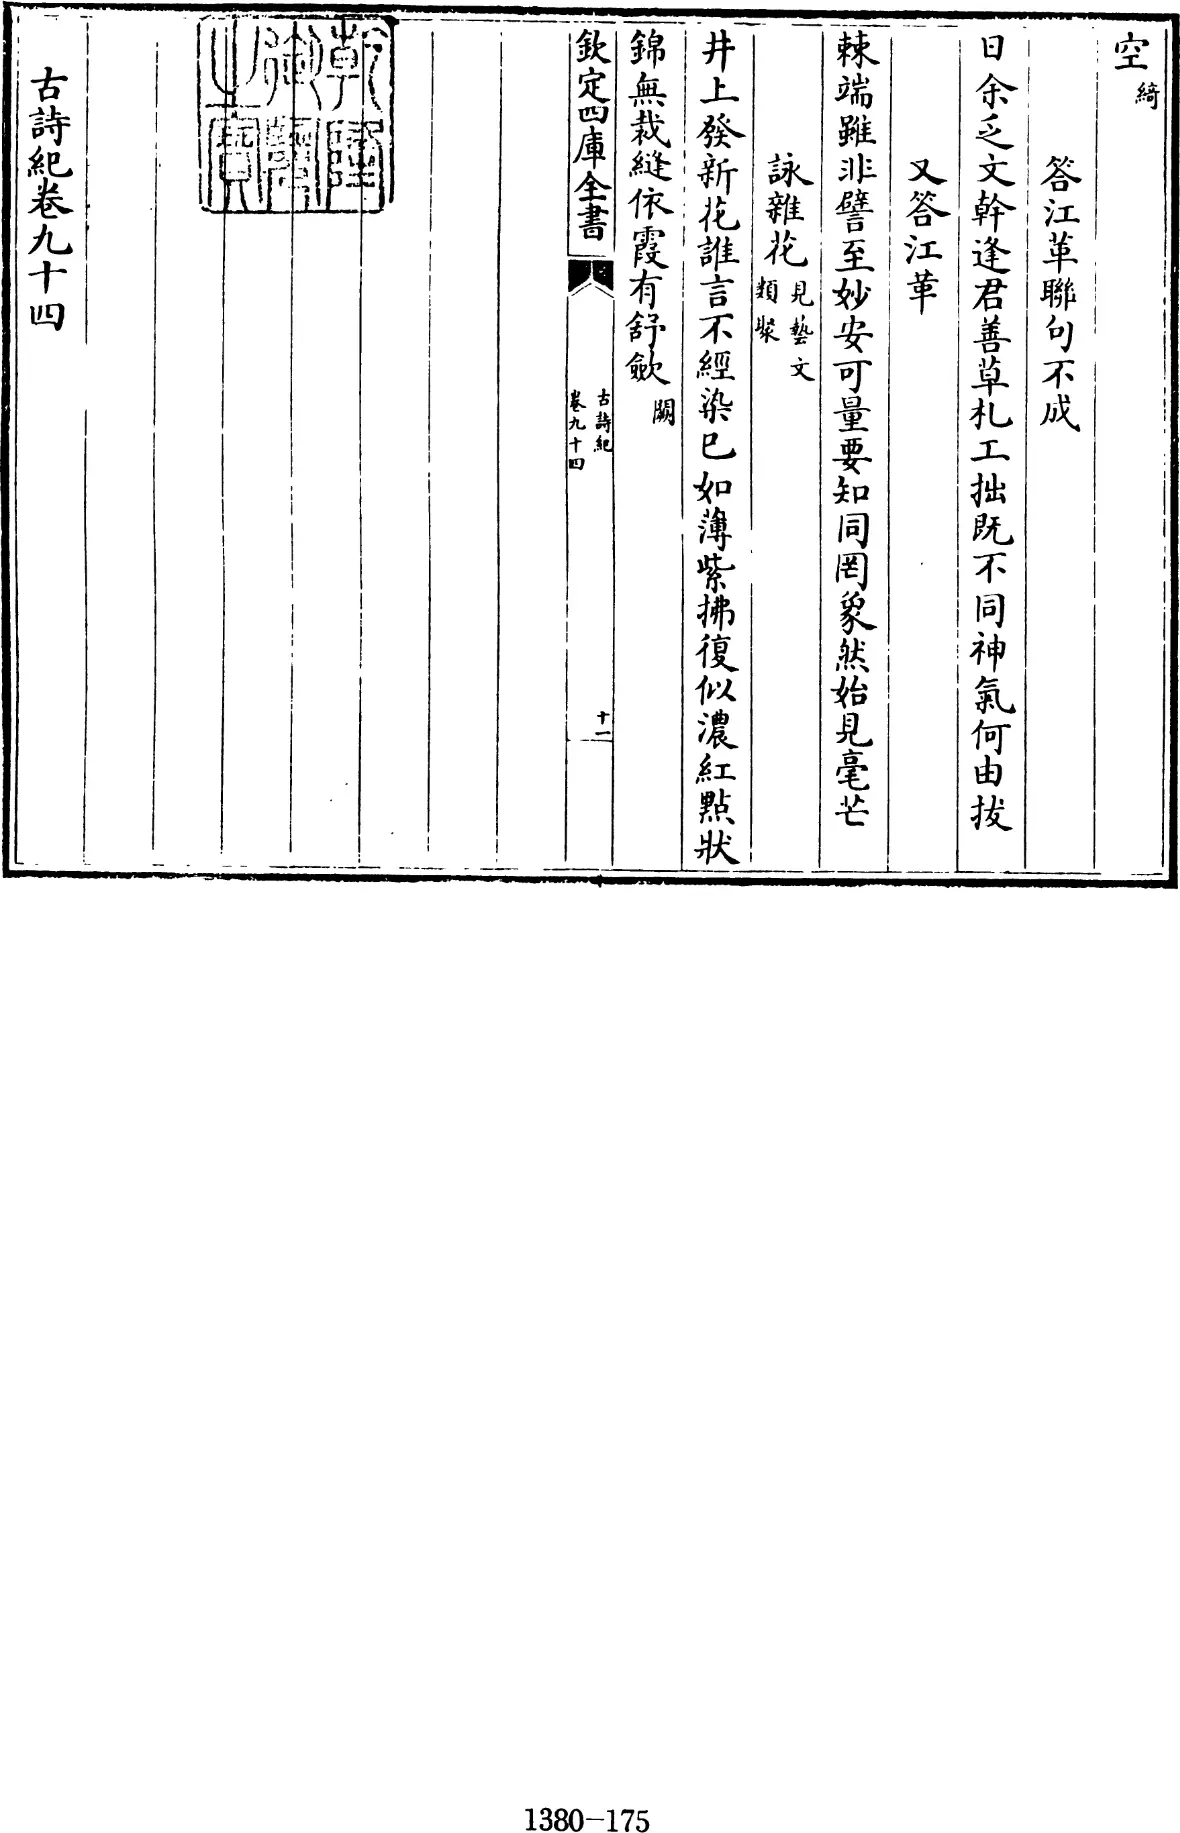 空綺
答江革聯句不成
日余乏文幹逢君善草札工拙既不同神氣何由拔
又答江革
棘端雖非譬至妙安可量要知同罔象然始見毫芒
詠雜花見藝文類聚
井上發新花誰言不經染已如薄紫拂復似濃紅點狀
錦無裁縫依霞有舒歛闕
欽定四庫全書
古詩紀
卷九十四
十二
乾隆御覽之寶
古詩紀卷九十四
1380-175